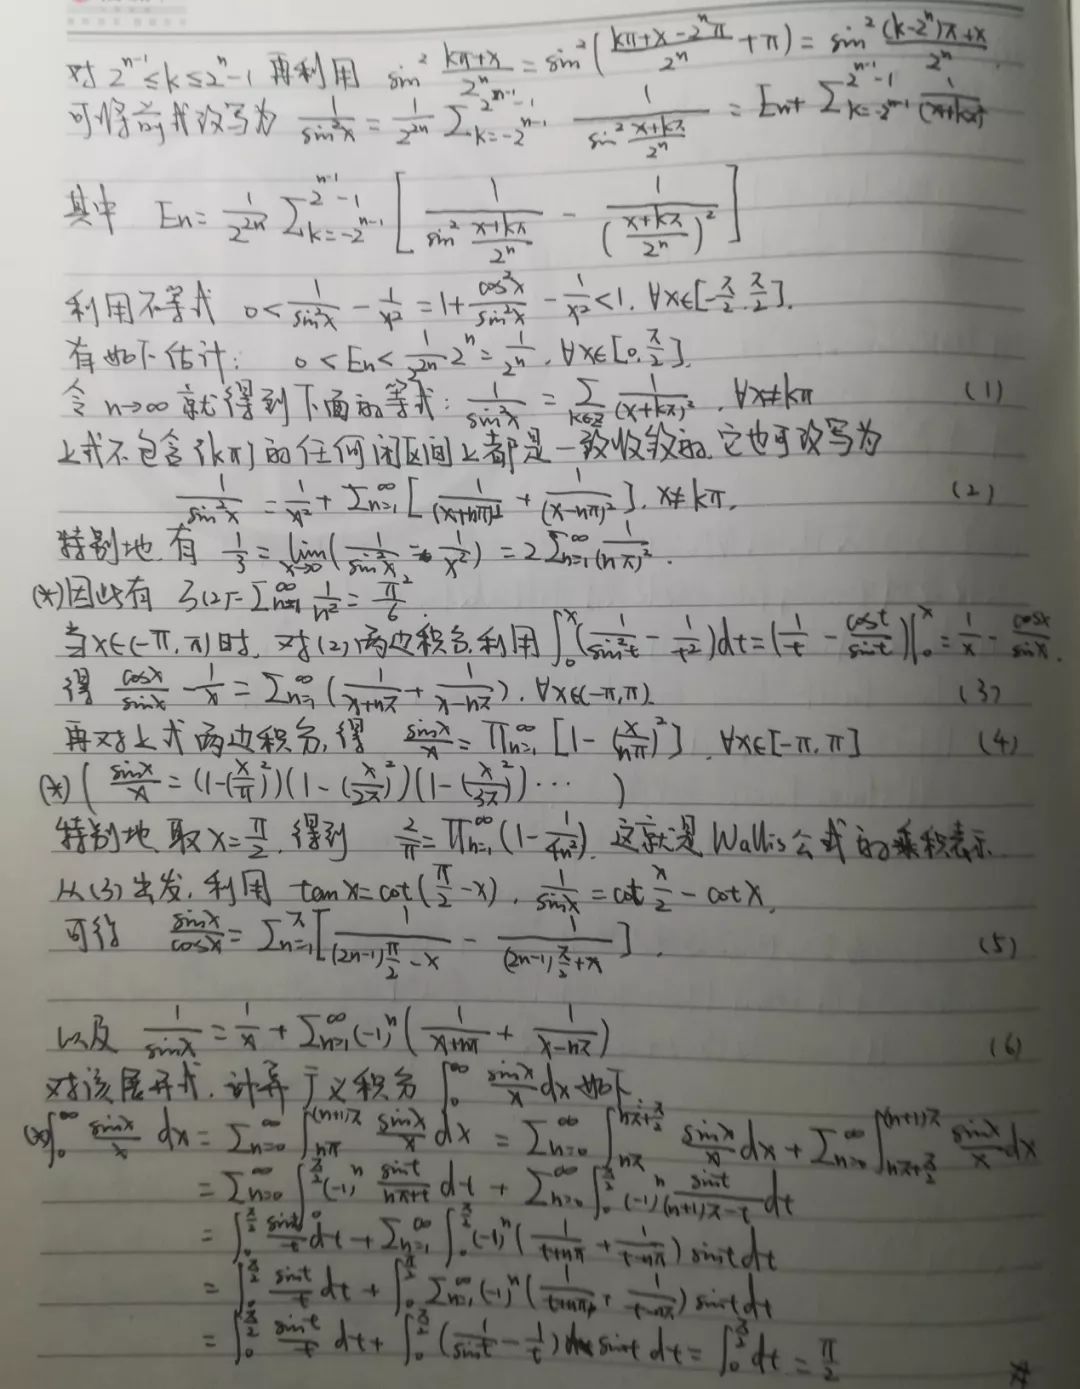 对 2^{n-1}≤k≤2^n-1 再利用 sin² (kπ+x)/2^n = sin²((kπ+x-2^nπ)/2^n + π) = sin² ((k-2^n)π+x)/2^n
可将 式改写为 1/sin²x = 1/2^{2n} Σ_{k=-2^{n-1}}^{2^{n-1}-1} 1/(sin² (x+kπ)/2^n) = En + Σ_{k=-2^{n-1}}^{2^{n-1}-1} 1/(x+kπ)²
其中 En = 1/2^{2n} Σ_{k=-2^{n-1}}^{2^{n-1}-1} [1/(sin² (x+kπ)/2^n) - 1/((x+kπ)/2^n)²]
利用不等式 0 < 1/sin²x - 1/x² = 1 + cos²x/sin²x - 1/x² < 1. ∀x∈[-π/2, π/2].
有如下估计: 0 < En < 1/2^{2n} 2^n = 1/2^n. ∀x∈[0, π/2].
令 n→∞ 就得到下面的等式: 1/sin²x = Σ_{k∈Z} 1/(x+kπ)². ∀x≠kπ (1)
上式不包含{kπ}的任何闭区间上都是一致收敛的. 它也可改写为
1/sin²x = 1/x² + Σ_{n=1}^∞ [1/(x+nπ)² + 1/(x-nπ)²]. x≠kπ. (2)
特别地 有 1/3 = lim_{x→0}(1/sin²x - 1/x²) = 2Σ_{n=1}^∞ 1/(nπ)².
(*)因此有 ζ(2)=Σ_{n=1}^∞ 1/n² = π²/6.
当x∈(-π,π)时. 对(2)两边积分. 利用 ∫_0^x (1/sin²t - 1/t²)dt = (1/t - cost/sint)|_0^x = 1/x - cosx/sinx.
得 cosx/sinx - 1/x = Σ_{n=1}^∞ (1/(x+nπ) + 1/(x-nπ)). ∀x∈(-π,π). (3)
再对上式两边积分, 得 sinx/x = Π_{n=1}^∞ [1-(x/nπ)²]. ∀x∈[-π,π] (4)
(*)( sinx/x = (1-(x/π)²)(1-(x/2π)²)(1-(x/3π)²)··· )
特别地 取x=π/2. 得到 2/π = Π_{n=1}^∞ (1-1/4n²). 这就是Wallis公式的乘积表示
从(3)出发, 利用 tanx=cot(π/2-x). 1/sinx = cot x/2 - cotx.
可得 sinx/cosx = Σ_{n=1}^π [1/((2n-1)π/2-x) - 1/((2n-1)π/2+x)]. (5)
以及 1/sinx = 1/x + Σ_{n=1}^∞ (-1)^n (1/(x+nπ) + 1/(x-nπ)) (6)
对该展开式. 计算广义积分 ∫_0^∞ sinx/x dx 如下
(*)∫_0^∞ sinx/x dx = Σ_{n=0}^∞ ∫_{nπ}^{(n+1)π} sinx/x dx = Σ_{n=0}^∞ ∫_{nπ}^{nπ+π/2} sinx/x dx + Σ_{n=0}^∞ ∫_{nπ+π/2}^{(n+1)π} sinx/x dx
= Σ_{n=0}^∞ ∫_0^{π/2} (-1)^n sint/(nπ+t) dt + Σ_{n=0}^∞ ∫_0^{π/2} (-1)^n sint/((n+1)π-t) dt
= ∫_0^{π/2} sint/t dt + Σ_{n=1}^∞ ∫_0^{π/2} (-1)^n (1/(t+nπ) + 1/(t-nπ)) sint dt
= ∫_0^{π/2} sint/t dt + ∫_0^{π/2} Σ_{n=1}^∞ (-1)^n (1/(t+nπ) + 1/(t-nπ)) sint dt
= ∫_0^{π/2} sint/t dt + ∫_0^{π/2} (1/sint - 1/t) sint dt = ∫_0^{π/2} dt = π/2 #